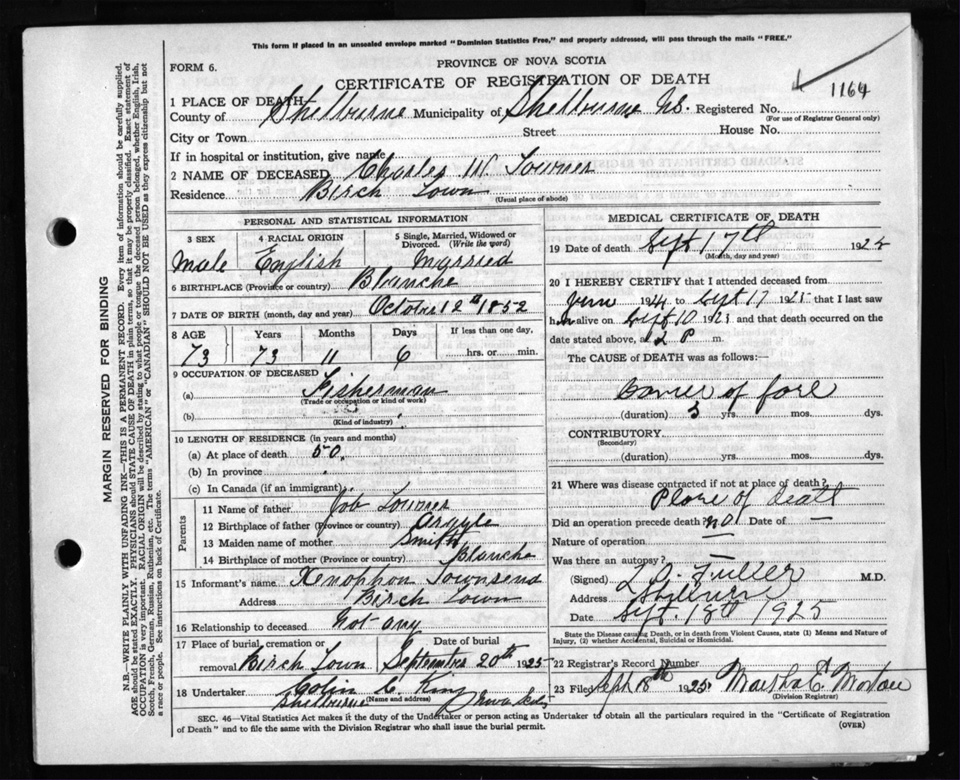 This form if placed in an unsealed envelope marked "Dominion Statistics Free," and properly addressed, will pass through the mails "FREE."
FORM 6.
PROVINCE OF NOVA SCOTIA
CERTIFICATE OF REGISTRATION OF DEATH
1164
1 PLACE OF DEATH
County of Shelburne Municipality of Shelburne NS. Registered No.
(For use of Registrar General only)
City or Town Street House No.
If in hospital or institution, give name
2 NAME OF DECEASED Charles W. Towner
Residence Birch Town
(Usual place of abode)
PERSONAL AND STATISTICAL INFORMATION
3 SEX 4 RACIAL ORIGIN 5 Single, Married, Widowed or Divorced. (Write the word)
Male English Married
6 BIRTHPLACE (Province or country) Blanche
7 DATE OF BIRTH (month, day and year) October 12th 1852
8 AGE Years Months Days If less than one day,
73 73 11 6 hrs. or min.
9 OCCUPATION OF DECEASED
(a) Fisherman
(Trade or occupation or kind of work)
(b)
(Kind of industry)
10 LENGTH OF RESIDENCE (in years and months)
(a) At place of death 50.
(b) In province
(c) In Canada (if an immigrant)
Parents
11 Name of father Job Towner
12 Birthplace of father (Province or country) Argyle
13 Maiden name of mother Smith
14 Birthplace of mother (Province or country) Blanche
15 Informant's name Xenophon Townsend
Address Birch Town
16 Relationship to deceased Not any
17 Place of burial, cremation or removal Date of burial
Birch Town September 20th 1925
18 Undertaker Colin C. King
(Name and address)
Shelburne Nova Scotia
MEDICAL CERTIFICATE OF DEATH
19 Date of death Sept 17th 1925
(Month, day and year)
20 I HEREBY CERTIFY that I attended deceased from
June 1924 to Sept 17 1925 that I last saw
him alive on Sept 10 1925 and that death occurred on the
date stated above, at 12 P m.
The CAUSE of DEATH was as follows:—
of
(duration) 3 yrs. mos. dys.
CONTRIBUTORY
(Secondary)
(duration) yrs. mos. dys.
21 Where was disease contracted if not at place of death?
Place of death
Did an operation precede death? no Date of —
Nature of operation —
Was there an autopsy? —
(Signed) L. G. Fuller M.D.
Address Shelburne
Date Sept. 18th 1925
State the Disease causing Death, or in death from Violent Causes, state (1) Means and Nature of Injury, (2) whether Accidental, Suicidal or Homicidal.
22 Registrar's Record Number
23 Filed Sept 18th 1925. Martha E.
(Division Registrar)
SEC. 46—Vital Statistics Act makes it the duty of the Undertaker or person acting as Undertaker to obtain all the particulars required in the "Certificate of Registration
of Death" and to file the same with the Division Registrar who shall issue the burial permit. (OVER)
MARGIN RESERVED FOR BINDING
N.B.—WRITE PLAINLY WITH UNFADING INK—THIS IS A PERMANENT RECORD. Every item of information should be carefully supplied.
AGE should be stated EXACTLY. PHYSICIANS should STATE CAUSE OF DEATH in plain terms, so that it may be properly classified. Exact statement of
OCCUPATION is very important. RACIAL ORIGIN will be described by stating to what people or tongue the deceased person belonged, whether English, Irish,
Scotch, French, German, Russian, Ruthenian, etc. The terms "AMERICAN" or "CANADIAN" SHOULD NOT BE USED as they express citizenship but not
a race or people. See instructions on back of Certificate.